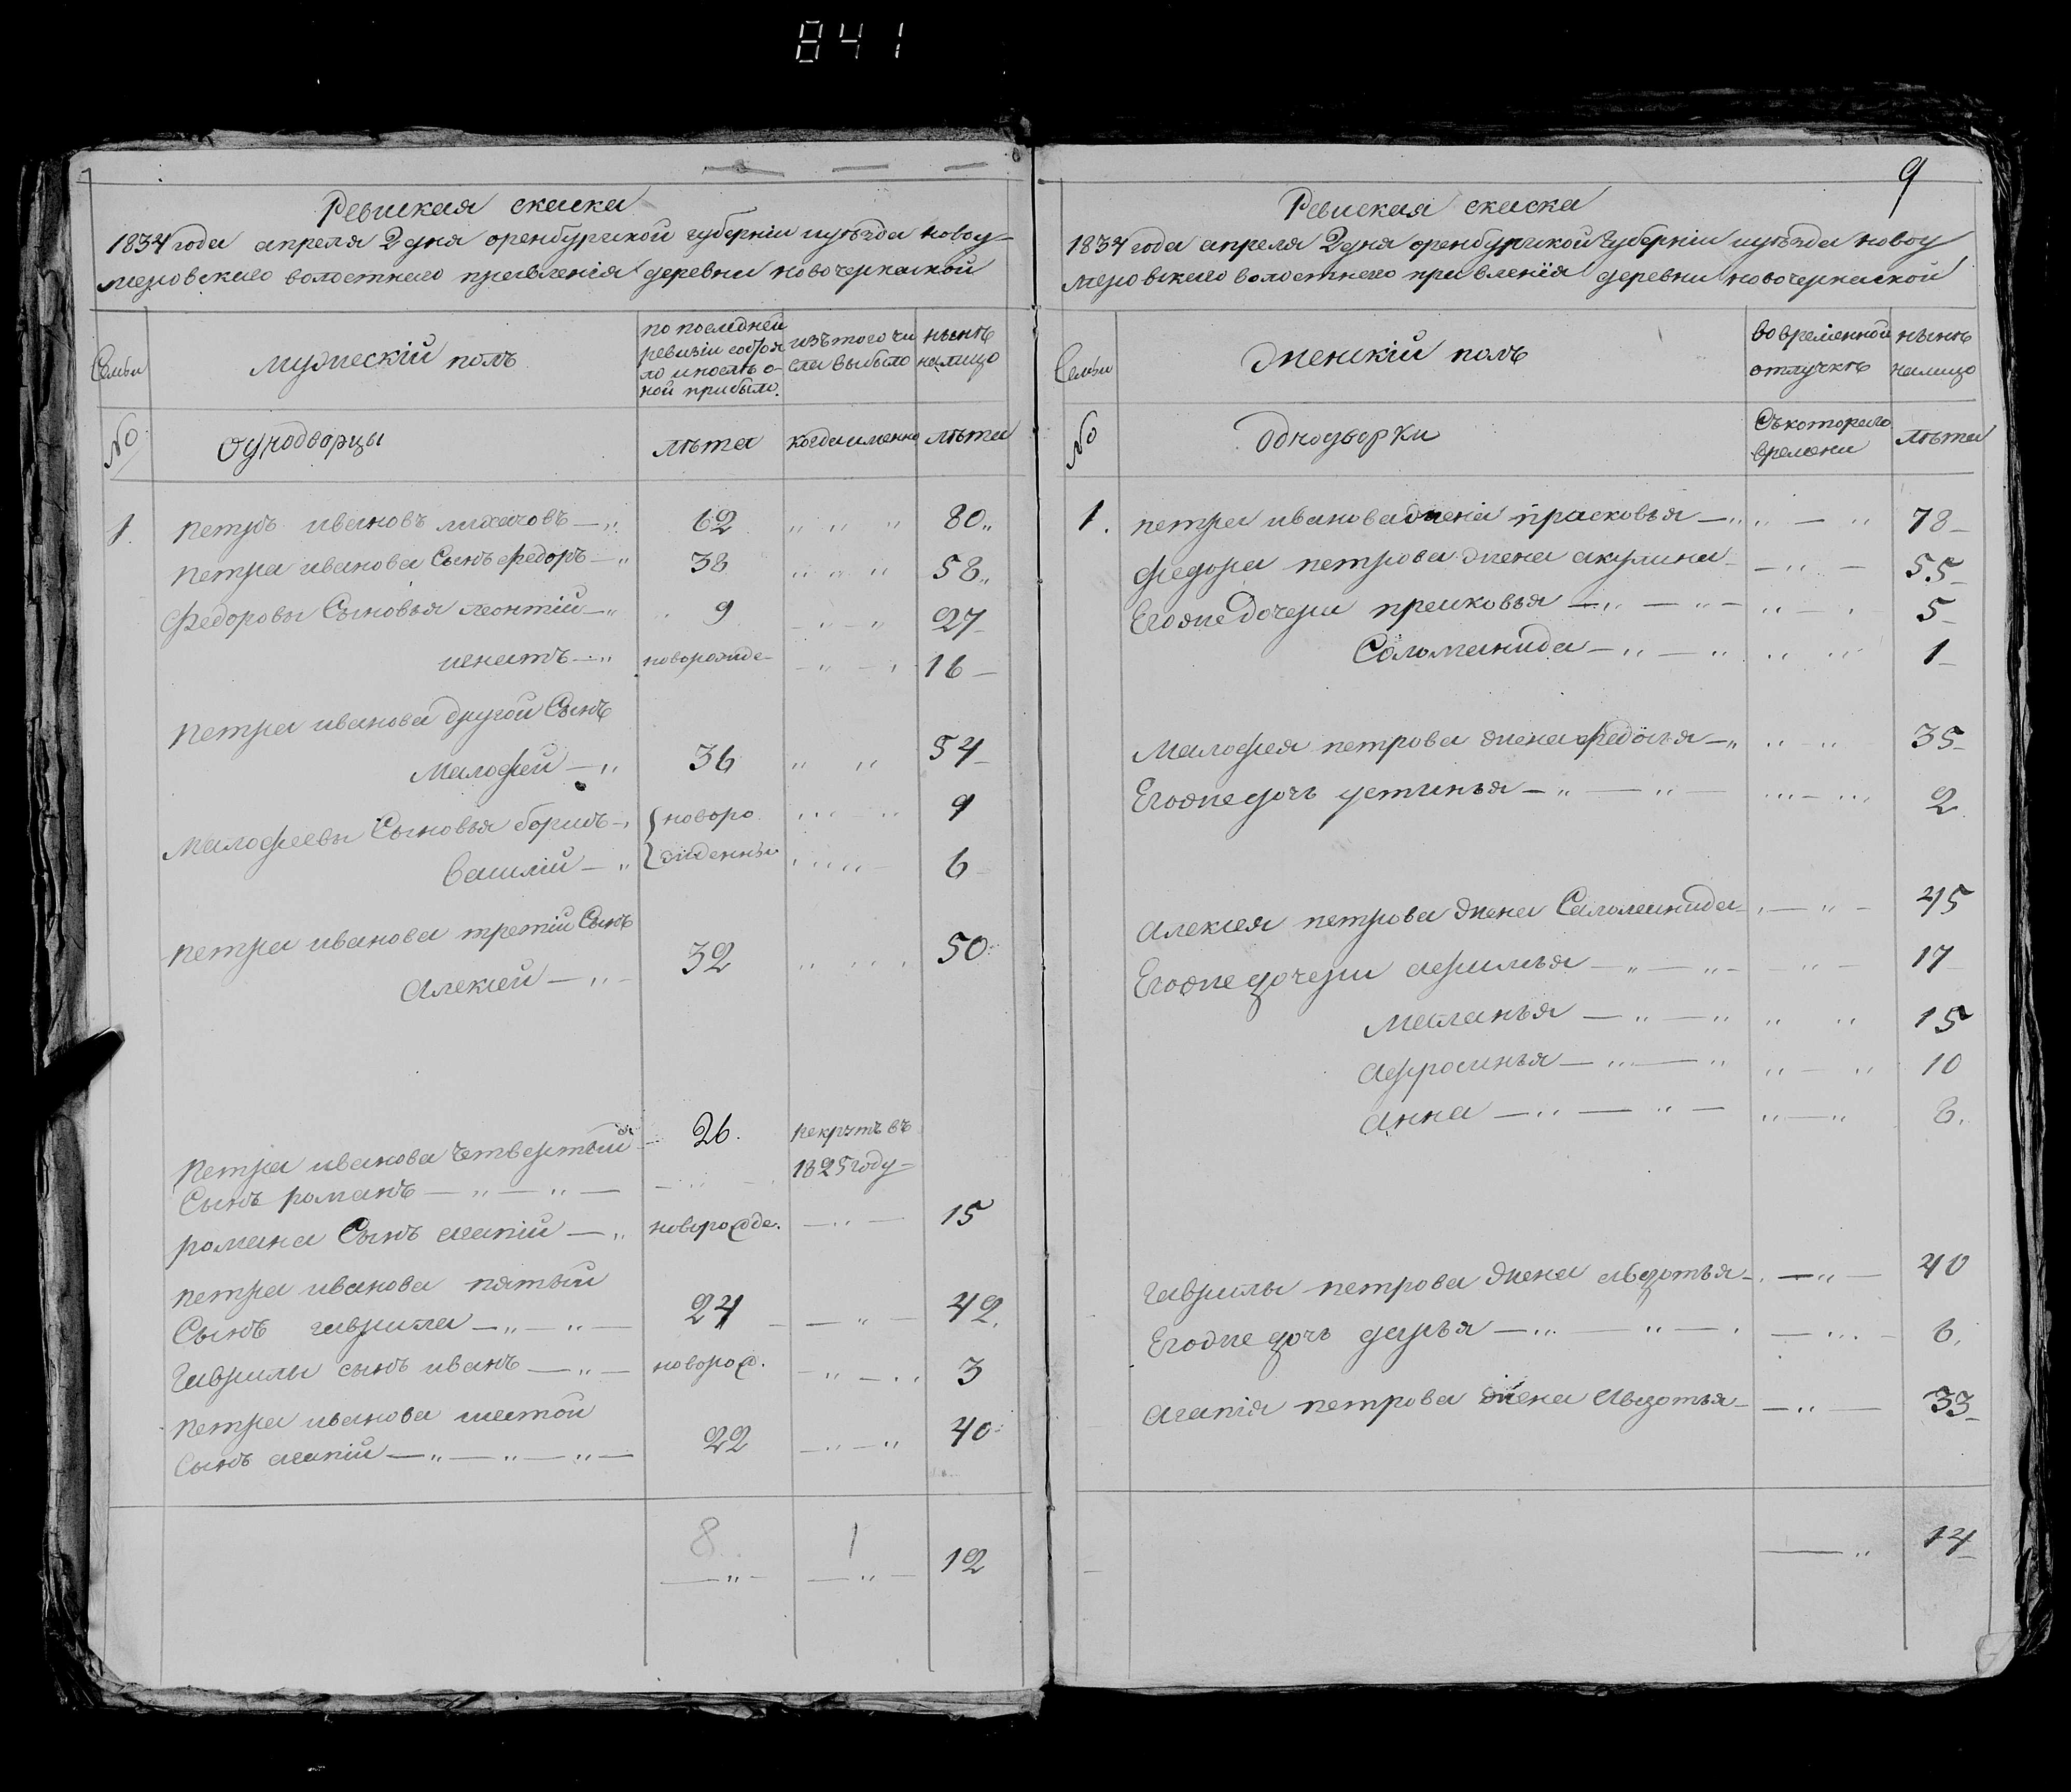 841
Ревиская скаска
1834 года апреля 2 дня оренбургской губерніи иуѣзда новоу-
меровскаго волостнаго правленія деревни новочеркаской
Семьи
мужескій полъ
по последней
ревизіи состоя
ло и послѣ о-
ной прибыло.
изъ того чи
сла выбыло
нынѣ
налицо
№
однодворцы
лѣта
когда именно
лѣта
1. петръ ивановъ лихачовъ 62 80
петра иванова Сынъ федоръ 38 58
Федоровы Сыновья леонтій 9 27
игнатъ новорожде 16
петра иванова другой Сынъ
Малофей 36 54
Малофеевы Сыновья борисъ новоро 9
василій жденны 6
петра иванова третій Сынъ
Алексей 32 50
петра иванова четвертый 26. рекрутъ въ
Сынъ романъ 1825 году
романа Сынъ агапій новорожде. 15
петра иванова пятый
Сынъ гаврила 24 42
Гаврилы сынъ иванъ новорож. 3
петра иванова шестой
Сынъ агапій 22 40
8 1 12
9
Ревиская скаска
1834 года апреля 2 дня оренбургской губерніи иуѣзда новоу
меровскаго волостнаго правленія деревни новочеркаской
Семьи
женскій полъ
во временной
отлучкѣ
нынѣ
налицо
№
однодворки
Съ котораго
времени
лѣта
1. петра иванова жена прасковья 78
федора петрова жена акулина 55
Егоже дочери прасковья 5
Соломанида 1
Малофея петрова жена федосья 35
Егоже дочь устинья 2
Алексея петрова жена Саломанида 45
Егоже дочери афимья 17
Маланья 15
Афросинья 10
анна 6.
Гаврилы петрова жена авдотья 40
Егоже дочь дарья 6.
Агапія петрова жена Авдотья 33
14